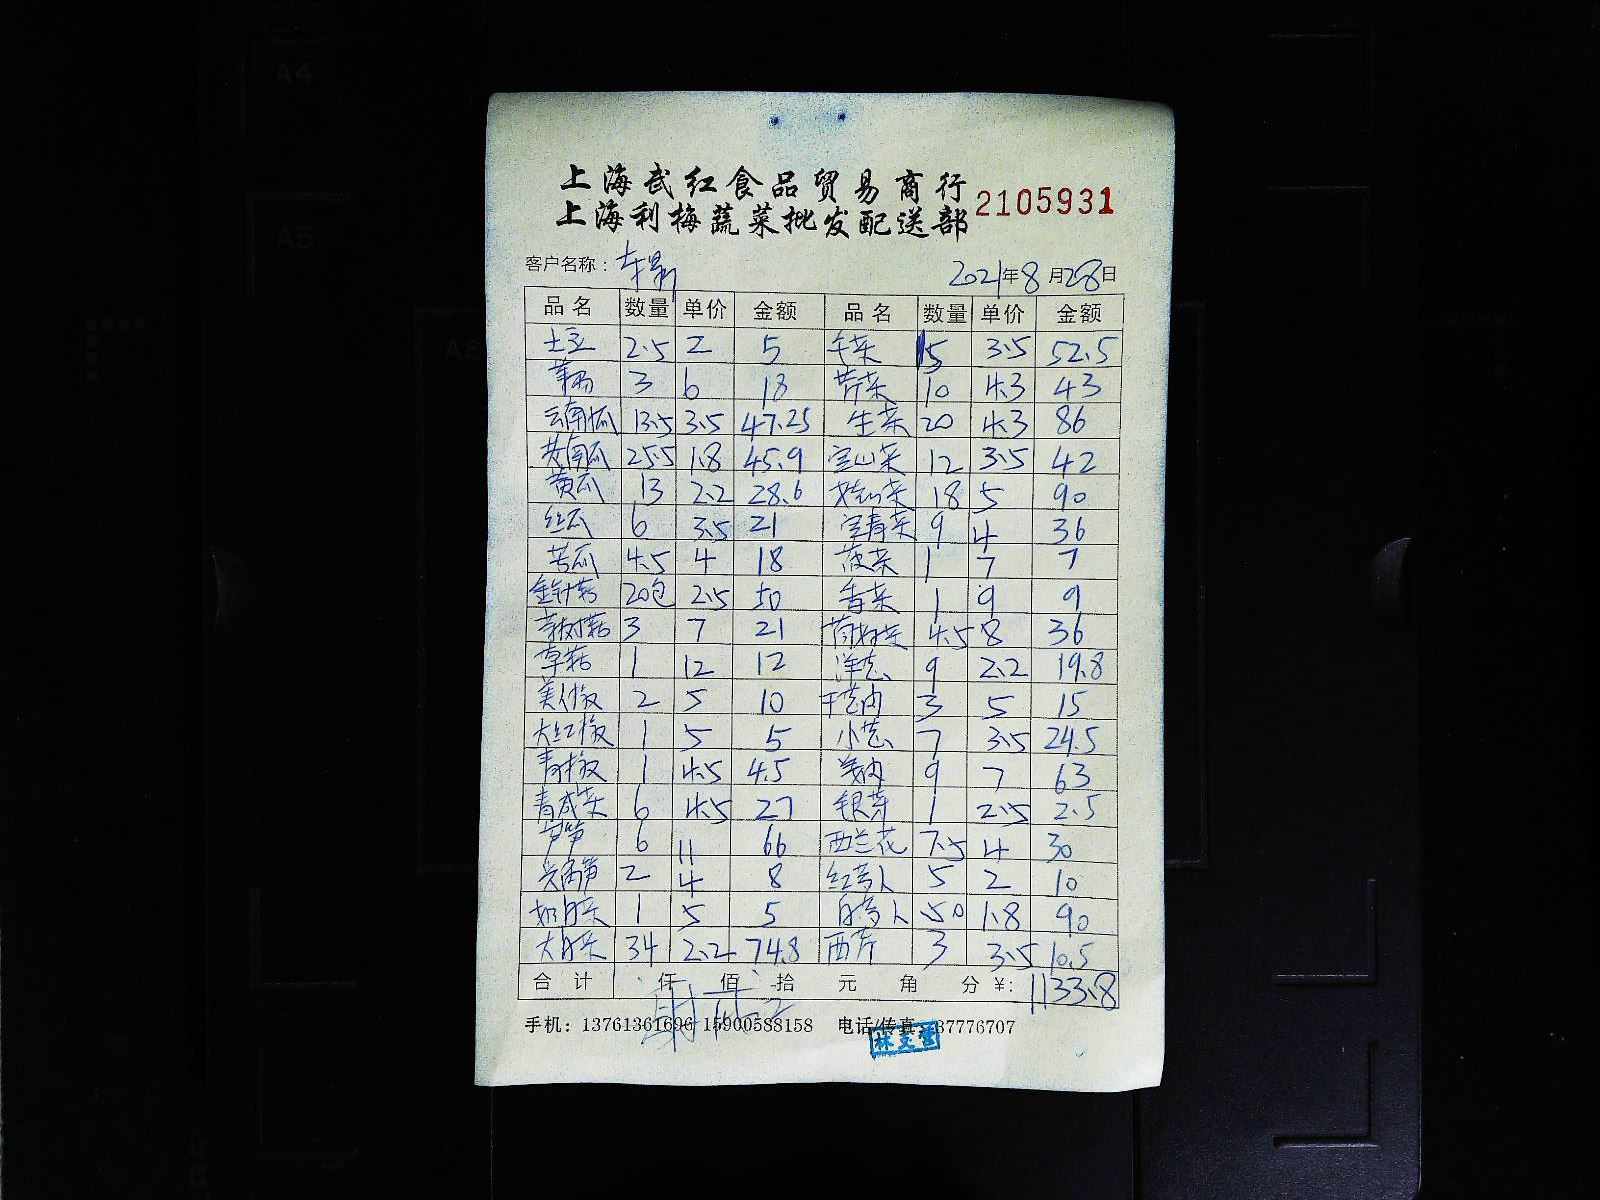 A4
A5
上海武红食品贸易商行
上海利梅蔬菜批发配送部 2105931
客户名称： 2021年8月28日
品名 数量 单价 金额 品名 数量 单价 金额
土豆 2.5 2 5 15 3.5 52.5
3 6 18 芹菜 10 4.3 43
云南瓜 13.5 3.5 47.25 生菜 20 4.3 86
老南瓜 25.5 1.8 45.9 宝山菜 12 3.5 42
黄瓜 13 2.2 28.6 18 5 90
丝瓜 6 3.5 21 宝青菜 9 4 36
苦瓜 4.5 4 18 菠菜 1 7 7
金针菇 20包 2.5 50 香菜 1 9 9
茶树菇 3 7 21 4.5 8 36
草菇 1 12 12 洋葱 9 2.2 19.8
美人椒 2 5 10 3 5 15
大红椒 1 5 5 小葱 7 3.5 24.5
青椒 1 4.5 4.5 9 7 63
6 4.5 27 银芽 1 2.5 2.5
芦笋 6 11 66 西兰花 7.5 4 30
2 4 8 红萝卜 5 2 10
1 5 5 白萝卜 50 1.8 90
34 2.2 74.8 西芹 3 3.5 10.5
合计 仟 佰 拾 元 角 分 ¥: 1133.8
手机：13761361696 15900588158 电话/传真：37776707